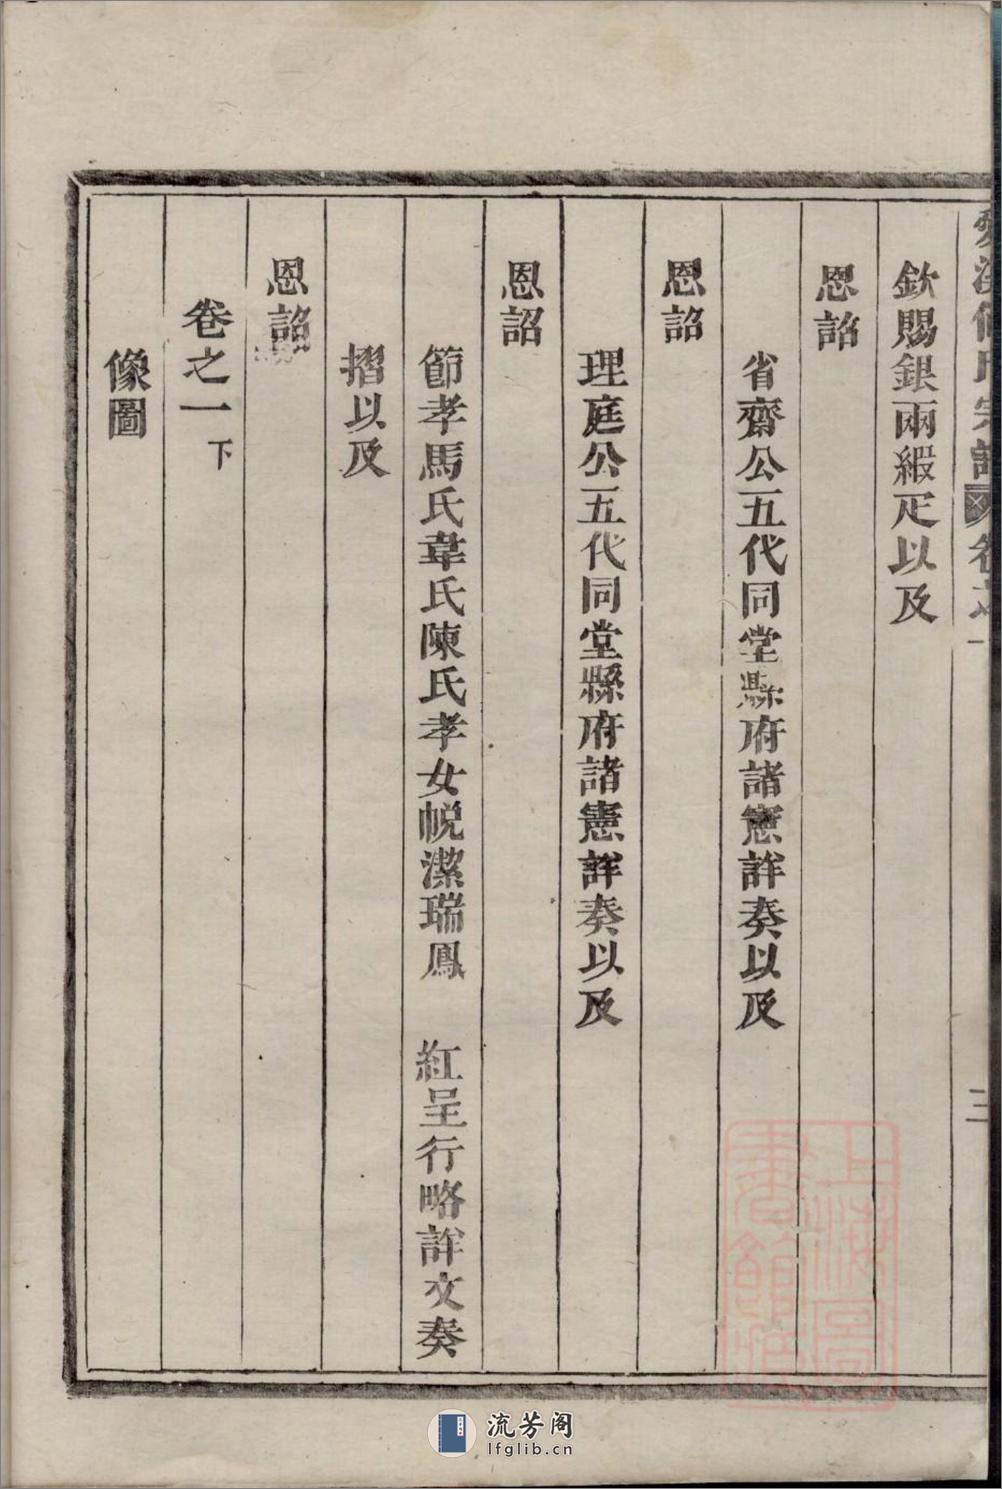 氏宗譜 卷之一 三
欽賜銀兩緞疋以及
恩詔
省齋公五代同堂縣府諸憲詳奏以及
恩詔
理庭公五代同堂縣府諸憲詳奏以及
恩詔
節孝馬氏韋氏陳氏孝女帨潔瑞鳳 紅呈行略詳文奏
摺以及
恩詔
卷之一下
像圖
上海圖書館藏
流芳阁
lfglib.cn